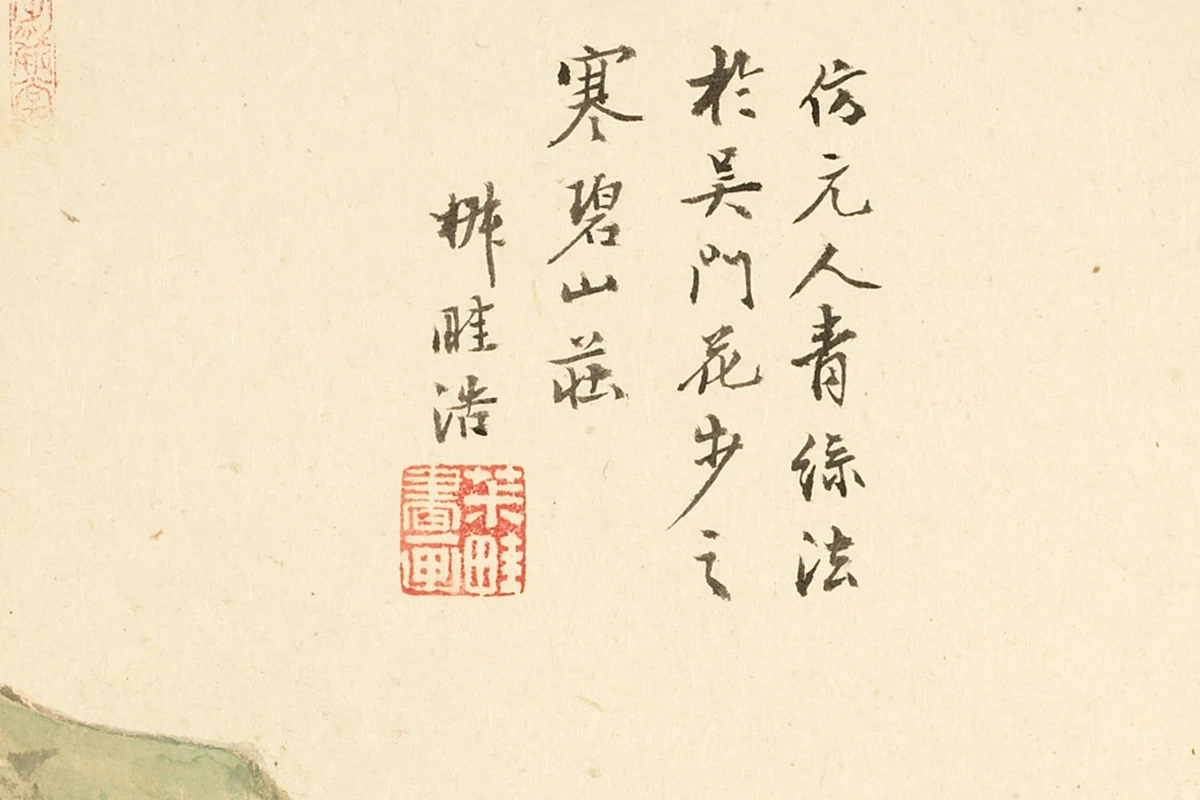 仿元人青綠法
於吳門花步之
寒碧山莊
椒畦浩
茮畦
書画